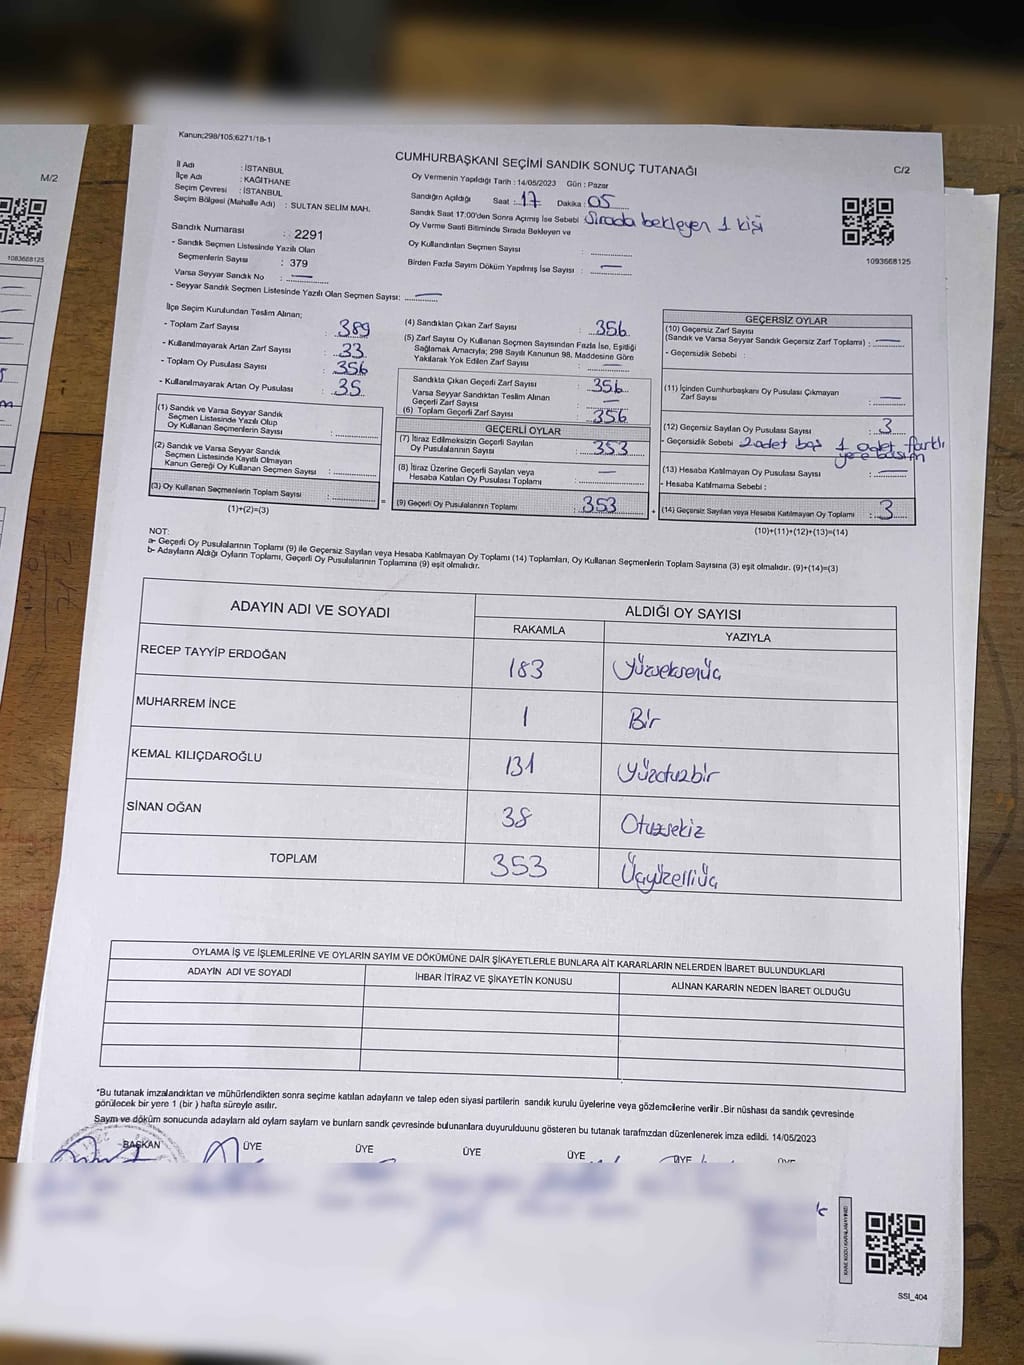 Kanun;298/105;6271/18-1
CUMHURBAŞKANI SEÇİMİ SANDIK SONUÇ TUTANAĞI
C/2
M/2
İl Adı : İSTANBUL
İlçe Adı : KAĞITHANE
Seçim Çevresi : İSTANBUL
Seçim Bölgesi (Mahalle Adı) : SULTAN SELİM MAH.
Oy Vermenin Yapıldığı Tarih : 14/05/2023 Gün : Pazar
Sandığın Açıldığı Saat : 17 Dakika : 05
Sandık Saat 17:00'den Sonra Açımış İse Sebebi Sırada bekleyen 1 kişi
Oy Verme Saati Bitiminde Sırada Bekleyen ve
Oy Kullandırılan Seçmen Sayısı :
Birden Fazla Sayım Döküm Yapılmış İse Sayısı : —
1093668125
1083668125
Sandık Numarası : 2291
- Sandık Seçmen Listesinde Yazılı Olan
Seçmenlerin Sayısı : 379
Varsa Seyyar Sandık No : —
- Seyyar Sandık Seçmen Listesinde Yazılı Olan Seçmen Sayısı: —
İlçe Seçim Kurulundan Teslim Alınan;
- Toplam Zarf Sayısı : 389
- Kullanılmayarak Artan Zarf Sayısı : 33
- Toplam Oy Pusulası Sayısı : 356
- Kullanılmayarak Artan Oy Pusulası : 35
(1) Sandık ve Varsa Seyyar Sandık
Seçmen Listesinde Yazılı Olup
Oy Kullanan Seçmenlerin Sayısı :
(2) Sandık ve Varsa Seyyar Sandık
Seçmen Listesinde Kayıtlı Olmayan
Kanun Gereği Oy Kullanan Seçmen Sayısı :
(3) Oy Kullanan Seçmenlerin Toplam Sayısı :
(1)+(2)=(3)
(4) Sandıktan Çıkan Zarf Sayısı : 356
(5) Zarf Sayısı Oy Kullanan Seçmen Sayısından Fazla İse, Eşitliği
Sağlamak Amacıyla; 298 Sayılı Kanunun 98. Maddesine Göre
Yakılarak Yok Edilen Zarf Sayısı : —
Sandıkta Çıkan Geçerli Zarf Sayısı : 356
Varsa Seyyar Sandıktan Teslim Alınan
Geçerli Zarf Sayısı : —
(6) Toplam Geçerli Zarf Sayısı : 356
GEÇERLİ OYLAR
(7) İtiraz Edilmeksizin Geçerli Sayılan
Oy Pusulalarının Sayısı : 353
(8) İtiraz Üzerine Geçerli Sayılan veya
Hesaba Katılan Oy Pusulası Toplamı : —
(9) Geçerli Oy Pusulalarının Toplamı : 353
GEÇERSİZ OYLAR
(10) Geçersiz Zarf Sayısı
(Sandık ve Varsa Seyyar Sandık Geçersiz Zarf Toplamı) : —
- Geçersizlik Sebebi :
(11) İçinden Cumhurbaşkanı Oy Pusulası Çıkmayan
Zarf Sayısı : —
(12) Geçersiz Sayılan Oy Pusulası Sayısı : 3
- Geçersizlik Sebebi 2 adet boş 1 adet farklı
yere basım
(13) Hesaba Katılmayan Oy Pusulası Sayısı : —
- Hesaba Katılmama Sebebi :
(14) Geçersiz Sayılan veya Hesaba Katılmayan Oy Toplamı : 3
(10)+(11)+(12)+(13)=(14)
NOT:
a- Geçerli Oy Pusulalarının Toplamı (9) ile Geçersiz Sayılan veya Hesaba Katılmayan Oy Toplamı (14) Toplamları, Oy Kullanan Seçmenlerin Toplam Sayısına (3) eşit olmalıdır. (9)+(14)=(3)
b- Adayların Aldığı Oyların Toplamı, Geçerli Oy Pusulalarının Toplamına (9) eşit olmalıdır.
ADAYIN ADI VE SOYADI
ALDIĞI OY SAYISI
RAKAMLA YAZIYLA
RECEP TAYYİP ERDOĞAN 183 Yüzseksenüç
MUHARREM İNCE 1 Bir
KEMAL KILIÇDAROĞLU 131 Yüzotuzbir
SİNAN OĞAN 38 Otuzsekiz
TOPLAM 353 Üçyüzelliüç
OYLAMA İŞ VE İŞLEMLERİNE VE OYLARIN SAYIM VE DÖKÜMÜNE DAİR ŞİKAYETLERLE BUNLARA AİT KARARLARIN NELERDEN İBARET BULUNDUKLARI
ADAYIN ADI VE SOYADI İHBAR İTİRAZ VE ŞİKAYETİN KONUSU ALINAN KARARIN NEDEN İBARET OLDUĞU
*Bu tutanak imzalandıktan ve mühürlendikten sonra seçime katılan adayların ve talep eden siyasi partilerin sandık kurulu üyelerine veya gözlemcilerine verilir .Bir nüshası da sandık çevresinde
görülecek bir yere 1 (bir ) hafta süreyle asılır.
Sayım ve döküm sonucunda adayların ald oyların sayların ve bunların sandık çevresinde bulunanlara duyurulduunu gösteren bu tutanak tarafmzdan düzenlenerek imza edildi. 14/05/2023
BAŞKAN ÜYE ÜYE ÜYE ÜYE ÜYE ÜYE
SSI_404